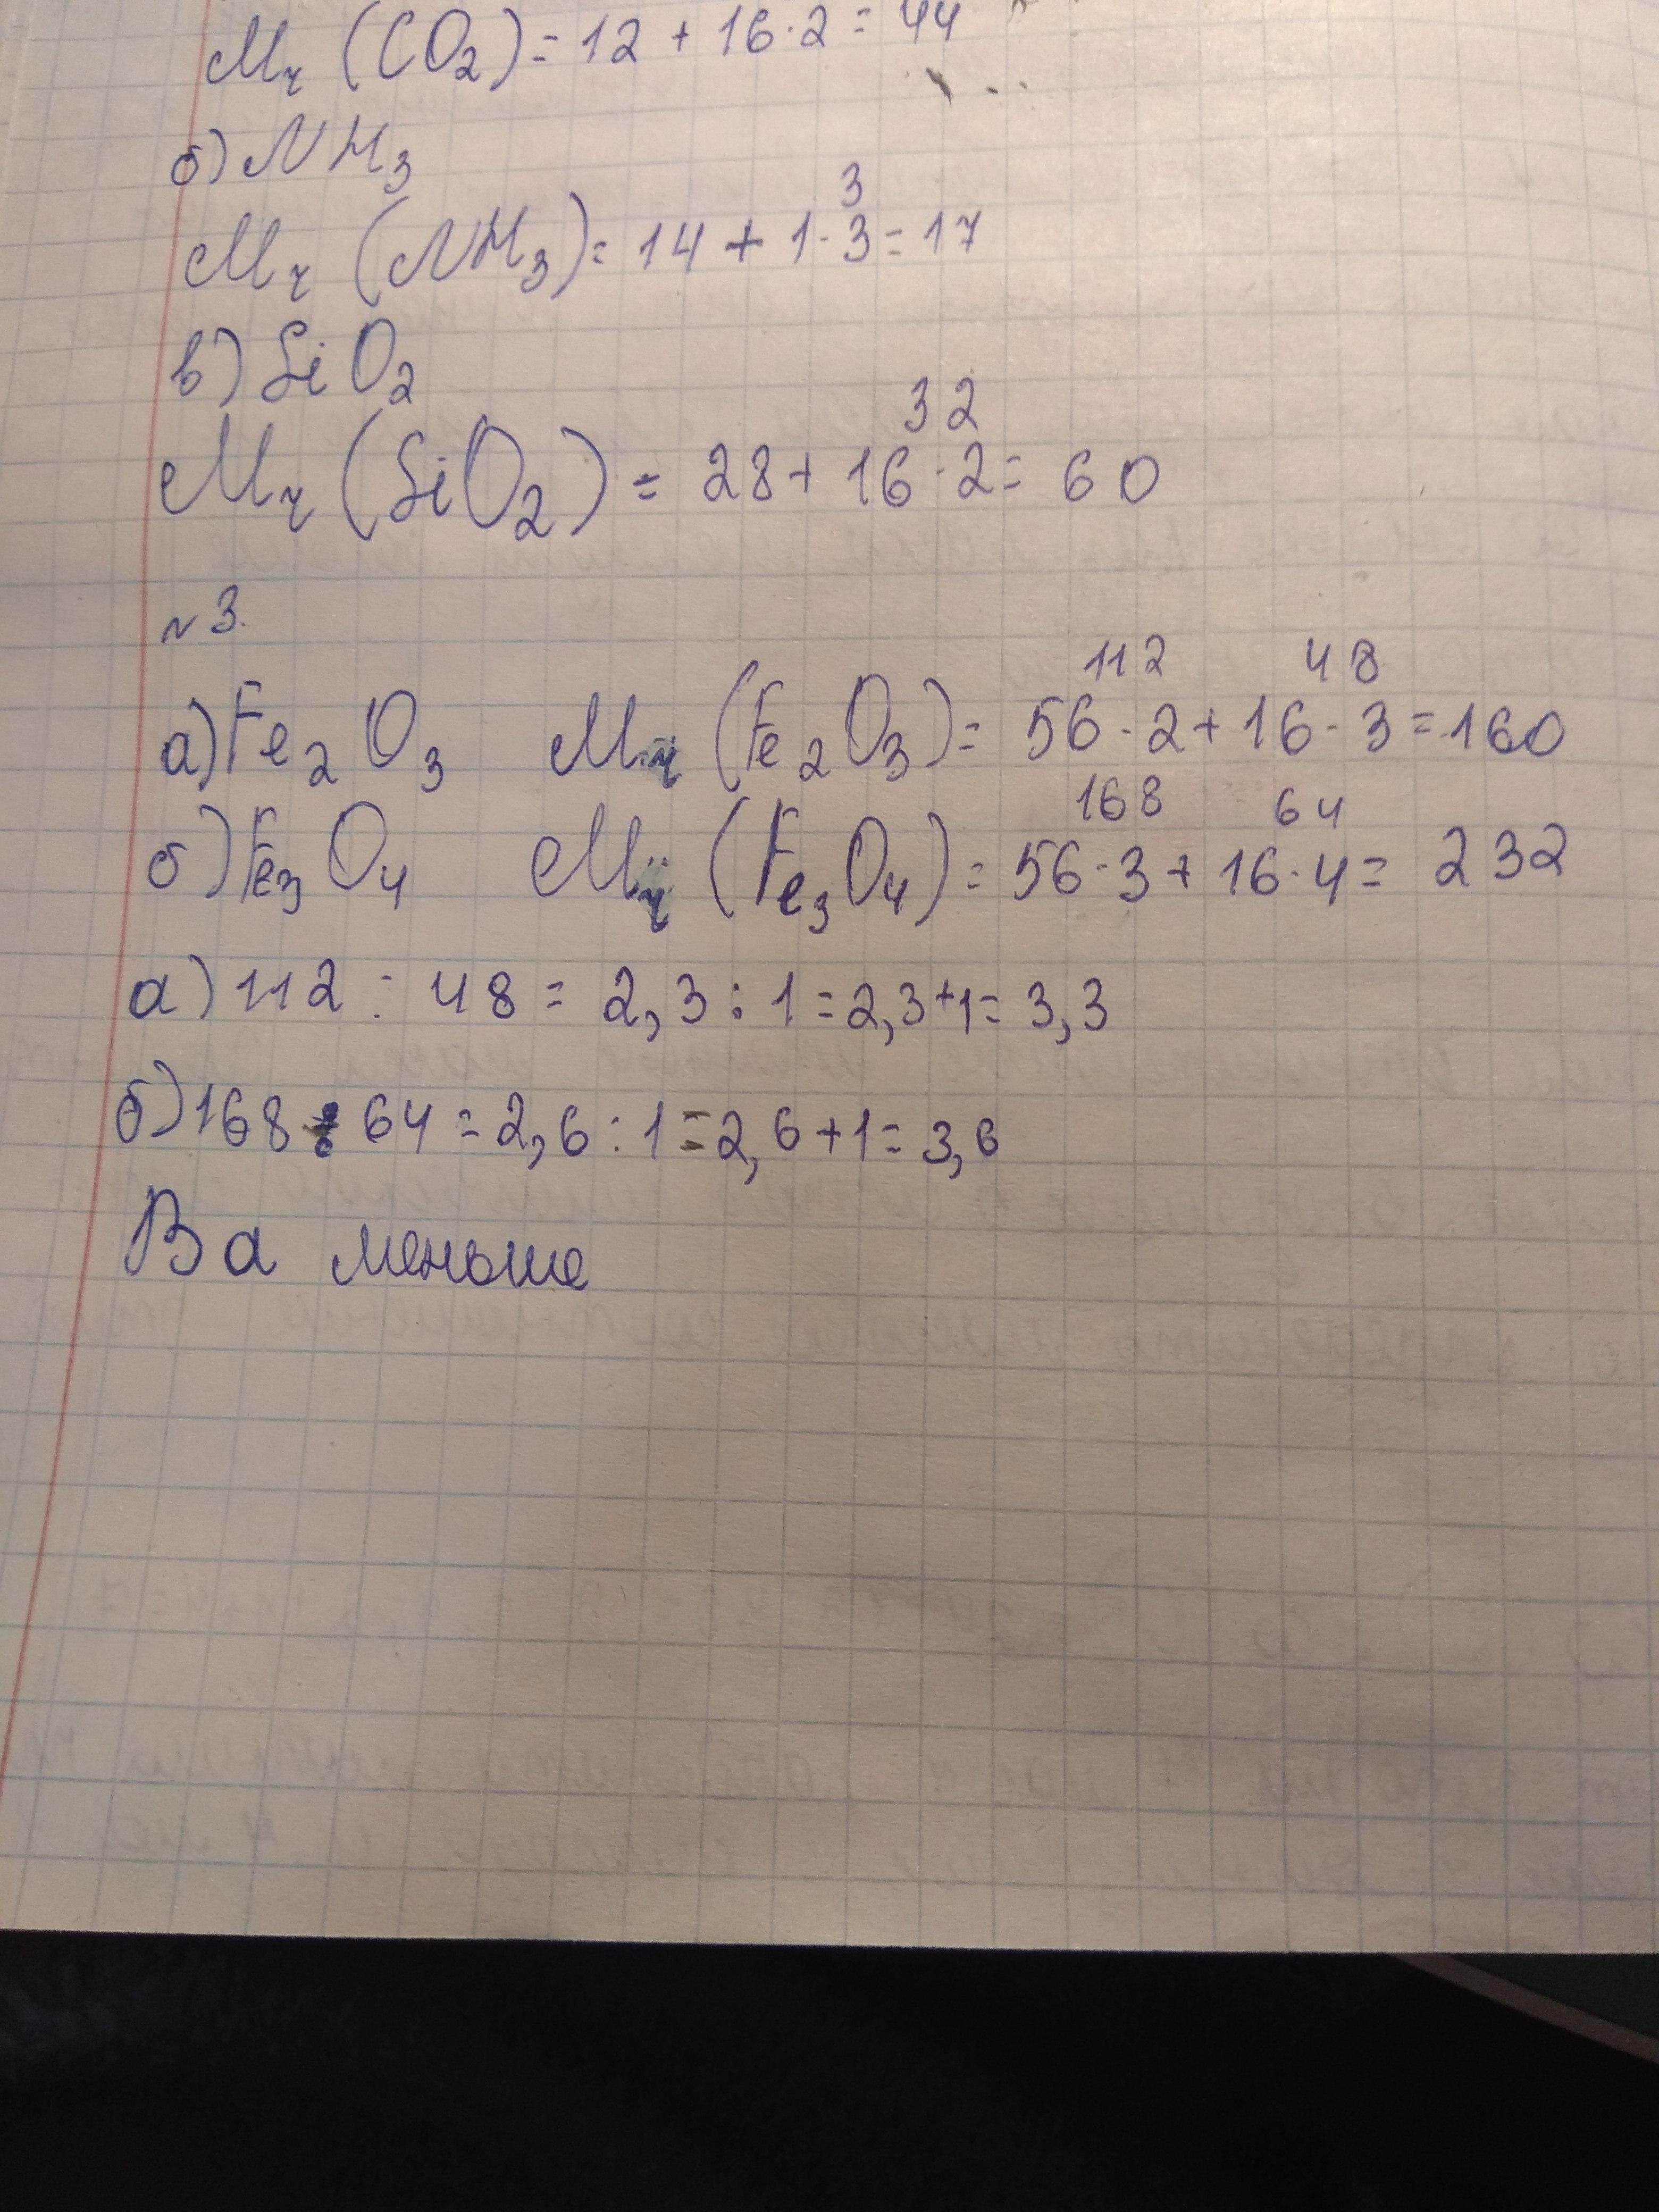 Mr (CO2) = 12 + 16·2 = 44
б) NH3
3
Mr (NH3) = 14 + 1·3 = 17
в) SiO2
32
Mr (SiO2) = 28 + 16·2 = 60
№3.
112 48
а) Fe2O3 Mr (Fe2O3) = 56·2 + 16·3 = 160
168 64
б) Fe3O4 Mr (Fe3O4) = 56·3 + 16·4 = 232
а) 112 : 48 = 2,3 : 1 = 2,3 + 1 = 3,3
б) 168 : 64 = 2,6 : 1 = 2,6 + 1 = 3,6
В а меньше